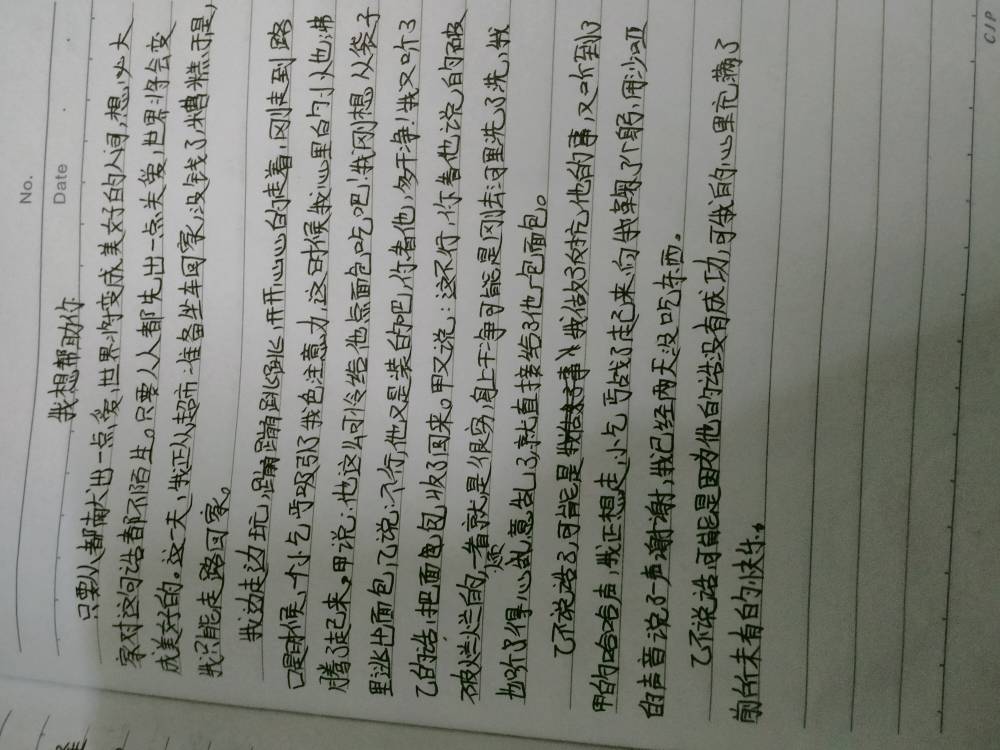 No.
Date
我想帮助你
只要人人都献出一点爱,世界将变成美好的人间,想必大
家对这句话都不陌生。只要人人都失出一点关爱,世界将会变
成美好的。这一天,我正从超市准备坐车回家,没钱了,糟糕于是,
我只能走路回家。
我边走边玩,蹦蹦跳跳,开开心心的走着,刚走到路
口是时候,一个小乞丐吸引了我色注意力,这时候我心里白勺小人也沸
腾了起来。甲说:他这么可怜给他点面包吃吧!我刚想从袋子
里逃出面包,乙说:不行,他又是装的吧,你者他,多干净!我又听了
乙的话,把面包包收了回来。甲又说:这不行,你着他说,的破
破烂烂的,一看就是很穷,身上干净可能是刚去河里洗了洗,我
也听了得心烦意乱了,就直接给了他一包面包。
乙不说话了,可能是我做了反抗他的事,又听到了
甲的哈哈声,我正想走,小乞丐战了起来向我鞠了个躬,用沙哑
的声音说了一声谢谢,我已经两天没吃东西。
乙不说话可能是因为他的话没有成功,可我的心里充满了
前所未有的快乐。
CIP